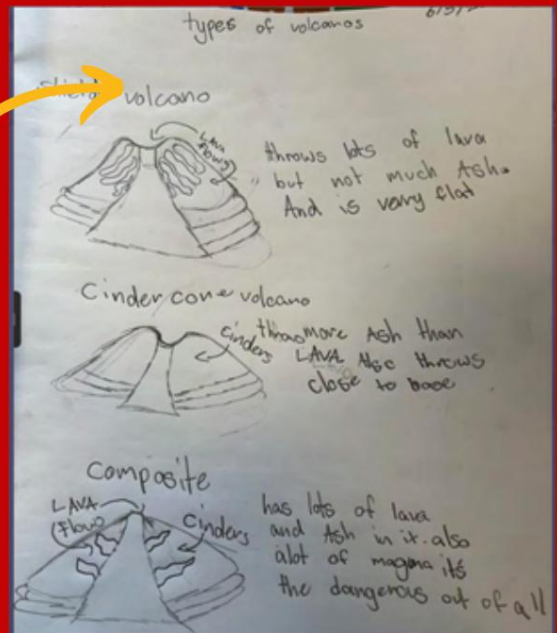 types of volcanos
Shield volcano
LAVA
flows
throws lots of lava
but not much Ash.
And is very flat
Cinder cone volcano
cinders
throws more Ash than
LAVA Also throws
close to base
Composite
LAVA
(flow)
cinders
has lots of lava
and Ash in it. also
alot of magma its
the dangerous out of all